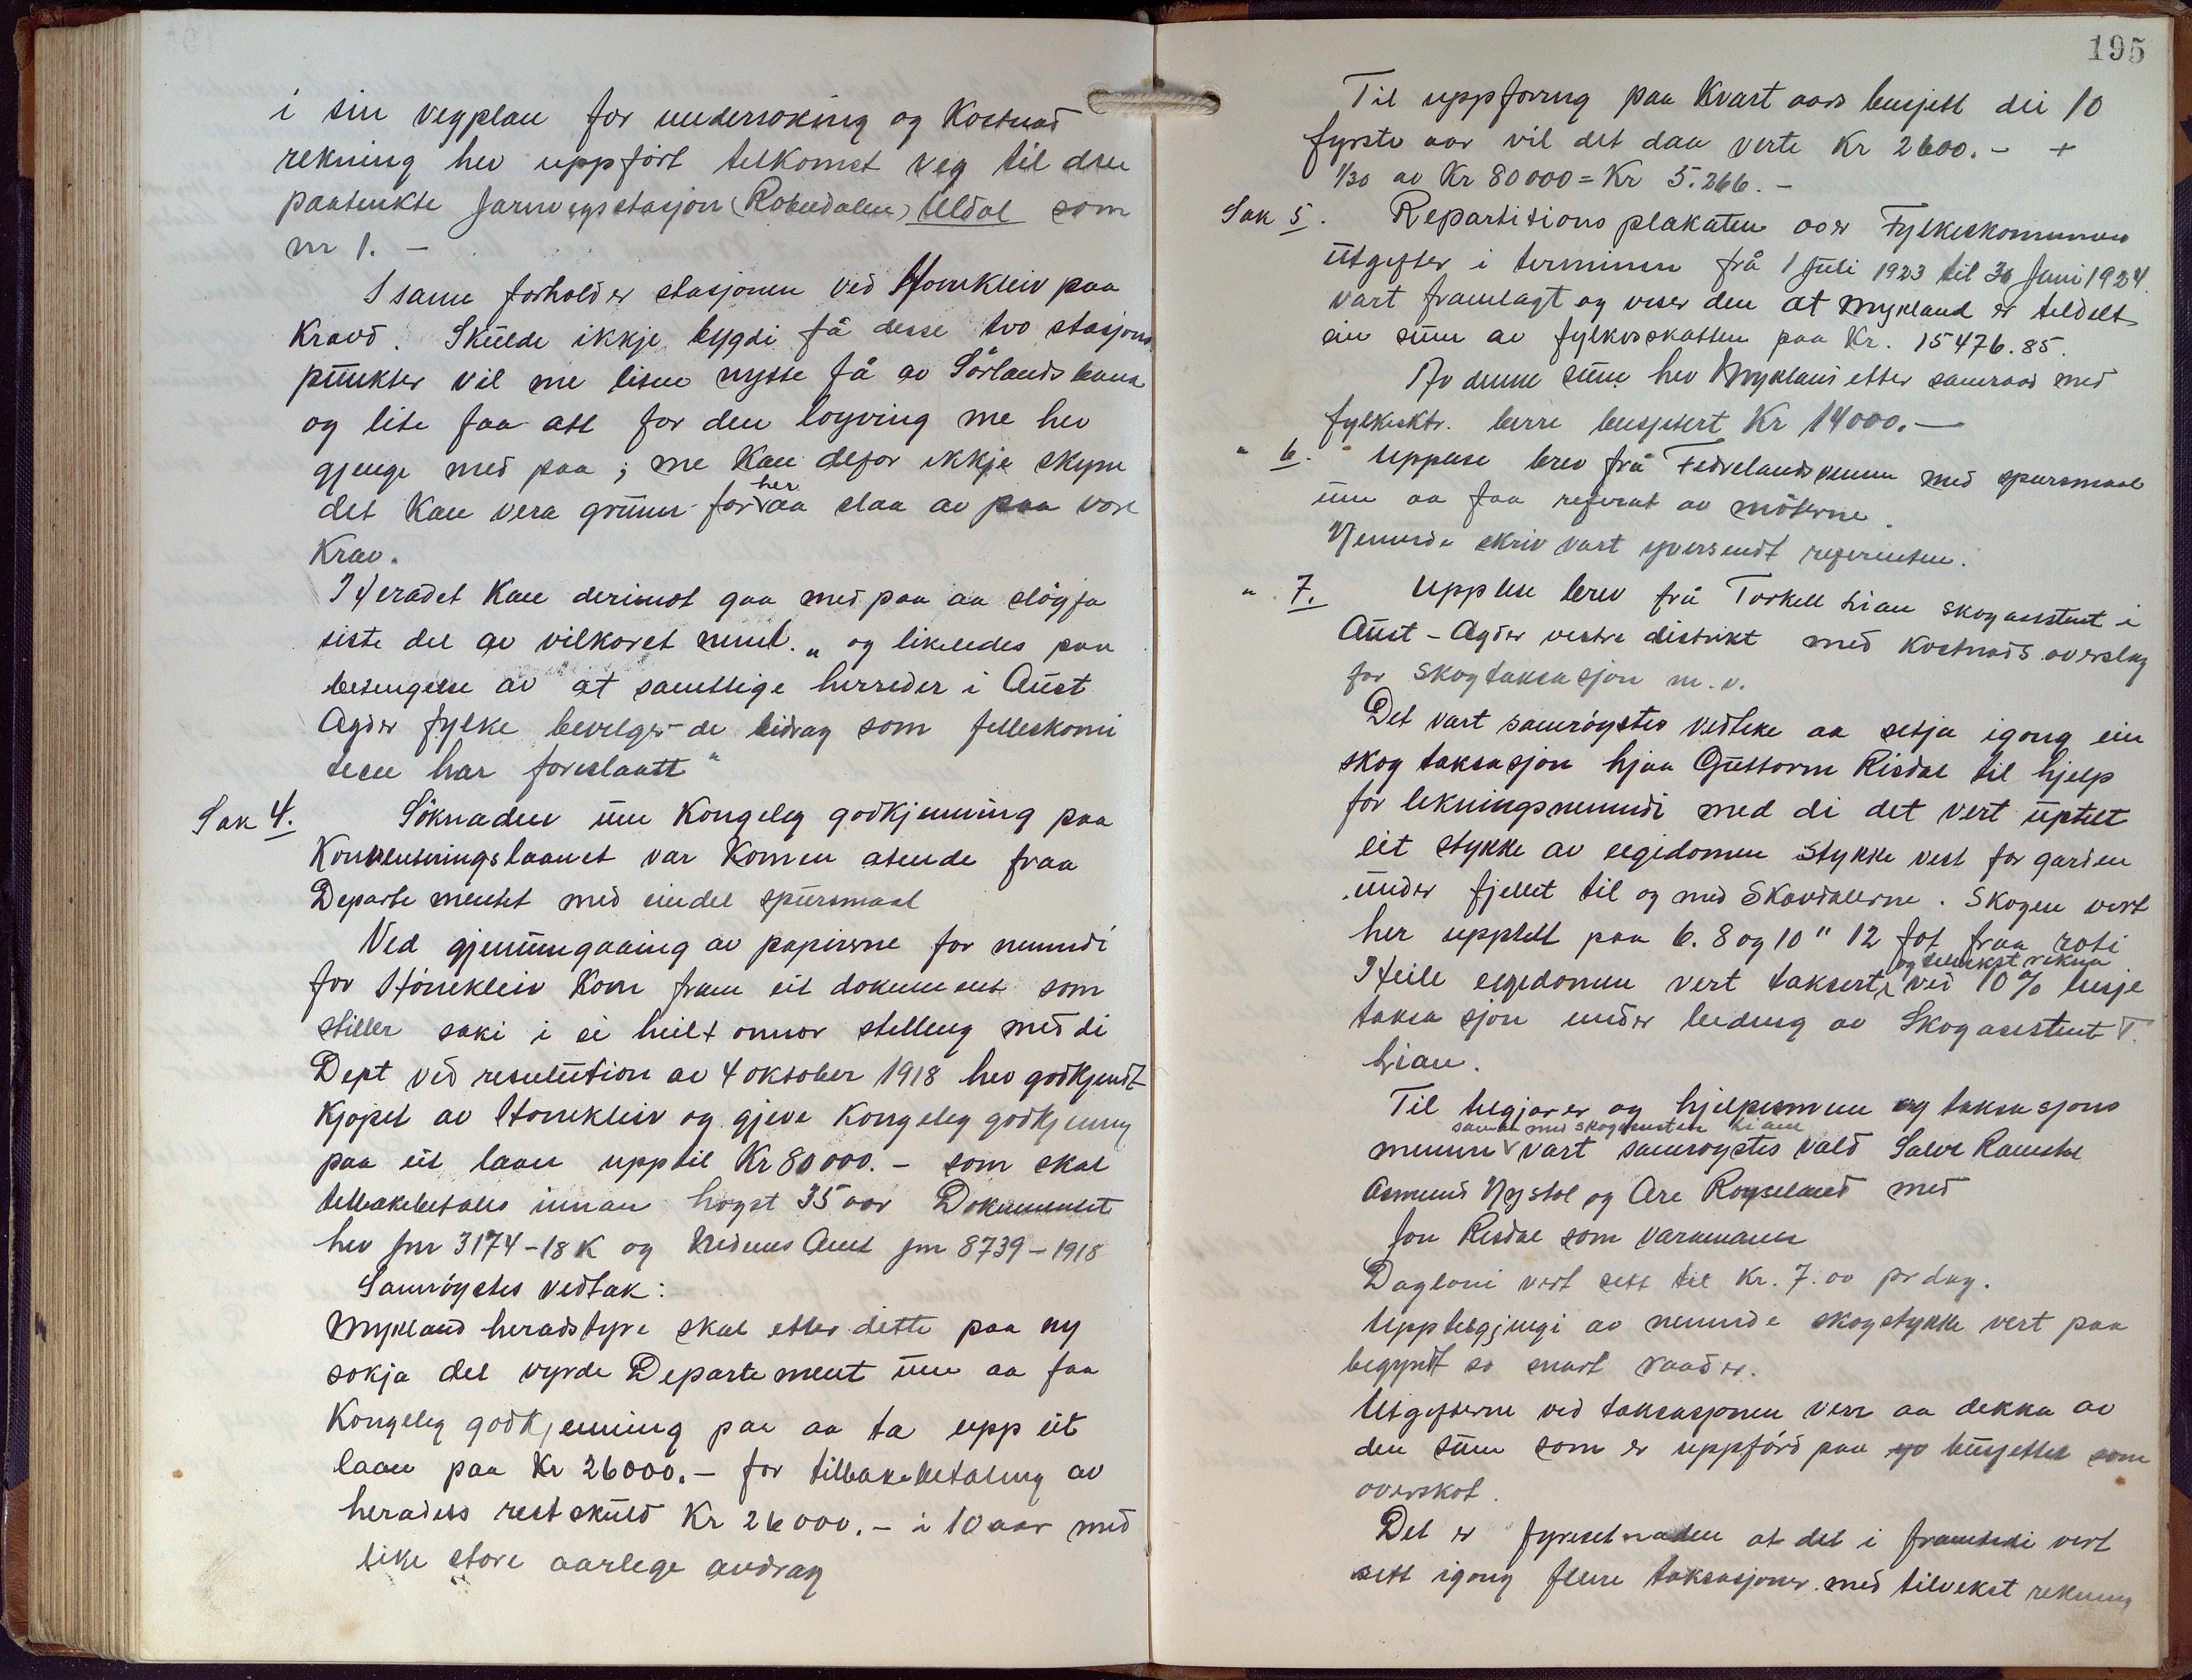 i sin vegplan for undersøking og Kostnad
rekning hev uppført tilkomst veg til den
paatenkte jarnvegsstasjon (Robudalen) Uldal som
nr 1. —
I same forhold er stasjonen ved Honnkleiv paa
Kravd. Skulde ikkje bygdi få desse tvo stasjons
punkter vil me liten nytte få av Sørlands bana
og lite faa att for den løyving me hev
gjenge med paa ; me Kan defor ikkje skyne
det Kan vera grunn for her aa slaa av paa vore
Krav.
Heradet Kan derimot gaa med paa aa sløyfa
siste del av vilkoret nemlt. „ og likeledes paa
betingelse av at samtlige herreder i Aust
Agder fylke bevelger de bidrag som felleskomi
teen har foreslaatt "
Sak 4. Søknaden um Kongeleg godkjenning paa
Konverteringslaanet var Komen atende fraa
Departementet med eindel spursmaal
Ved gjenumgaaing av papirerne for nemndi
for Hønnekleiv Kom fram eit dokument som
stiller saki i ei heilt onnor stelling med di
Dept ved resulution av 4 oktober 1918 hev godkjendt
Kjøpet av Honnekleiv og gjeve Kongeleg godkjenning
paa eit laan upptil Kr 80000.- som skal
tilbakebetales innan høgst 35 aar Dokumentet
hev jnr 3174-18 K og Nedenes Amt jnr 8739-1918
Samrøystes vedtak :
Mykland heradstyre skal etter dette paa ny
søkja det vyrde Departement um aa faa
Kongeleg godkjenning paa aa ta upp eit
laan paa Kr 26000.- for tilbakebetaling av
heradets restskuld Kr 26000.- i 10 aar med
like store aarlege avdrag
195
Til uppføring paa Kvart aars busjett dei 10
fyrste aar vil det daa verte Kr 2600.- +
1/30 av Kr 80000 = Kr 5.266.-
Sak 5. Repartitions plakaten over Fylkeskommunens
utgifter i terminen frå 1 Juli 1923 til 30 Juni 1924
vart framlagt og viser den at Mykland er tildelt
ein sum av fylkesskatten paa Kr. 15476.85.
Av denne sum hev Mykland etter samraad med
fylkesktr. berre busjetert Kr 14000.—
" 6. Upplese brev frå Fedrelandsvennen med spursmaal
um aa faa referat av møterne.
Nemnde skriv vart yversendt referenten.
" 7. Upplese brev frå Torkell Lian skogasistent i
Aust-Agder vestre distrikt med Kostnads overslag
for skogtaksasjon m. v.
Det vart samrøystes vedteke aa setja igong ein
skog taksasjon hjaa Guttorm Risdal til hjelp
for likningsnemndi med di det vert uptelt
eit stykke av eigedomen stykke vest for garden
under fjellet til og med Skavdalerne. Skogen vert
her upptelt paa 6. 8 og 10" 12 fot fraa roti
Heile eigedomen vert taksert og tilvekst rekna ved 10 % linje
taksasjon under leiding av Skogasistent T.
Lian.
Til tilgjører og hjelpesmenn og taksasjons
menn saman med skogasistent Lian vart samrøystes vald Salve Ramstøl
Asmund Nystøl og Are Røyseland med
Jon Risdal som varamann
Dagløni vert sett til Kr. 7.00 pr dag.
Upptelgjingi av nemnde skogstykke vert paa
begyndt so snart raad er.
Utgifterne ved taksasjonen verr aa dekka av
den sum som er uppførd paa busjettet som
overskot.
Det er fyresetnaden at det i framtidi vert
sett igong fleire taksasjoner med tilvekst rekning